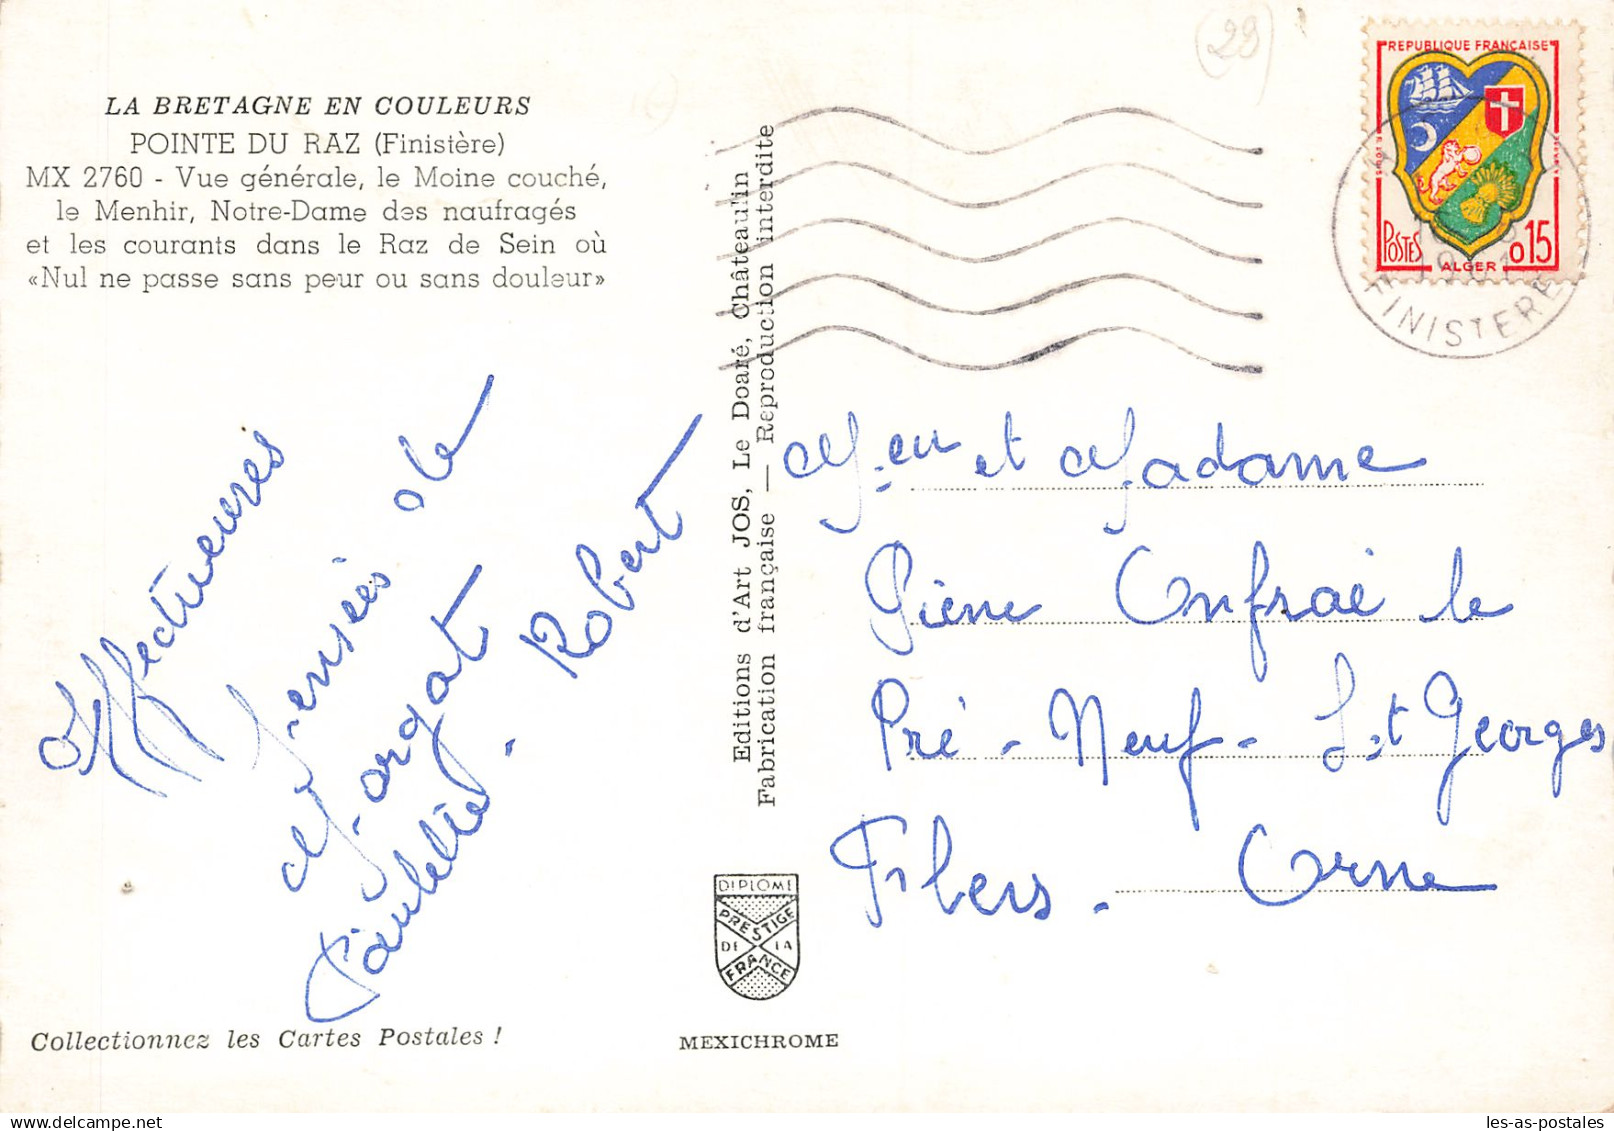 (29)
LA BRETAGNE EN COULEURS
POINTE DU RAZ (Finistère)
MX 2760 - Vue générale, le Moine couché,
le Menhir, Notre-Dame des naufragés
et les courants dans le Raz de Sein où
«Nul ne passe sans peur ou sans douleur»
REPUBLIQUE FRANÇAISE
POSTES
ALGER
0,15
FINISTERE
Affectueuses
pensées de
Morgat
Paulette - Robert
Editions d'Art JOS, Le Doaré, Châteaulin
Fabrication française — Reproduction interdite
M.eu et Madame
Pierre Onfrai le
Pré - Neuf - St Georges
Flers - Orne
DIPLOME
PRESTIGE
DE LA
FRANCE
Collectionnez les Cartes Postales !
MEXICHROME
les-as-postales
delcampe.net